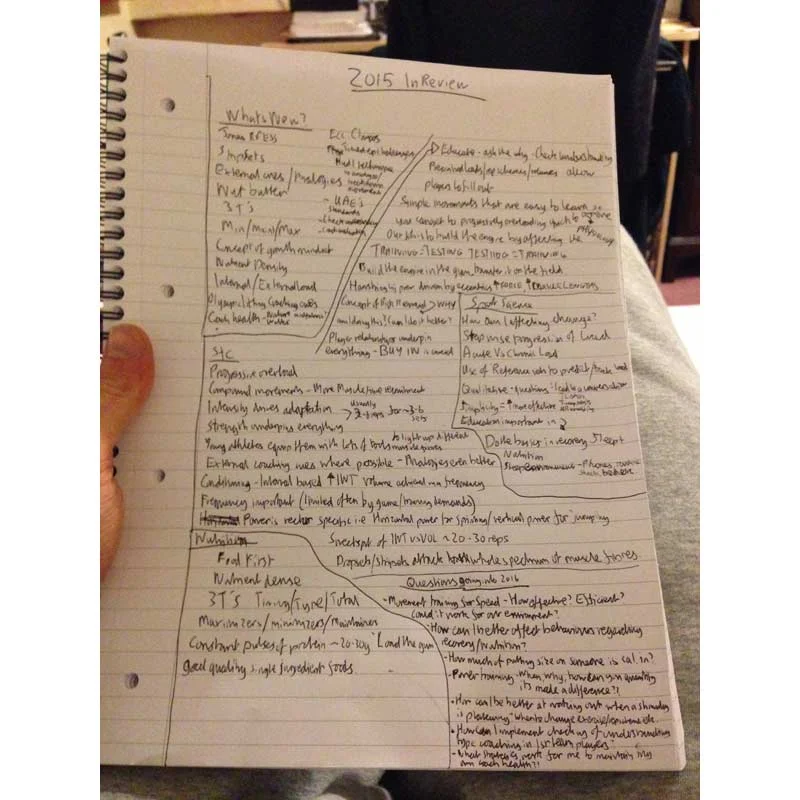 2015 In Review
What's New?
External cues / Analogies
Nut butter
3T's
Min/Maint/Max
Concept of growth mindset
Nutrient Density
Internal / External load
Olympic lifting Coaching cues
Coach health
Ecc. Chains
- UAE's
standards
Educate - ask the why - Check understanding
allow
players to fill out
Simple movements that are easy to learn so
you can get to progressively overloading quicker to achieve
Our job is to build the engine by affecting the physiology
TRAINING = TESTING TESTING = TRAINING
Build the engine in the gym, transfer it on the field
Hamstring hyper driven by eccentrics ↑ FORCE, ↑ MUSCLE LENGTHS
Concept of High Reward → Why
am I doing this? Can I do it better?
Player relationships underpin
everything - BUY IN is crucial
Sport Science
How am I affecting change?
Stepwise progression of Load
Acute Vs Chronic Load
Use of Reference
Qualitative - questions = lead to a conversation
Simplicity =
Education important in
Do the basics in recovery Sleep
Nutrition
Sleep Environment - Phones,
S+C
Progressive overload
Compound movements - More Muscle fibre recruitment
Intensity drives adaptation → usually 3-6
sets
Strength underpins everything
Young athletes equip them with lots of tools to light up different muscle groups
External coaching cues where possible - Analogies even better
Conditioning - Interval based ↑ INT Volume achieved via frequency
Frequency important (limited often by game/training demands)
Power is vector specific i.e Horizontal power for sprinting/vertical power for jumping
Sweetspot of INT vs VOL ~ 20-30 reps
Dropsets/stripsets attack whole spectrum of muscle fibres
Nutrition
Food First
Nutrient dense
3T'S Timing/Type/Total
Maximizers/minimizers/Maintainers
Constant pulses of protein ~ 20-30g "Load the gun"
Good quality single ingredient foods.
Questions going into 2016
- Movement training for Speed - How effective? Efficient?
Could it work for our environment?
- How can I better affect behaviours regarding
recovery/Nutrition?
- How much of putting size on someone is cal. in?
- Power training - When, why, how can you quantify
its made a difference?!
- How can I be better at working out when a
is plateauing - When to change exercise/ etc.
- How can I implement checking of understanding
type coaching in 1st team players?
- What strategies work for me to maintain my
own coach health?!